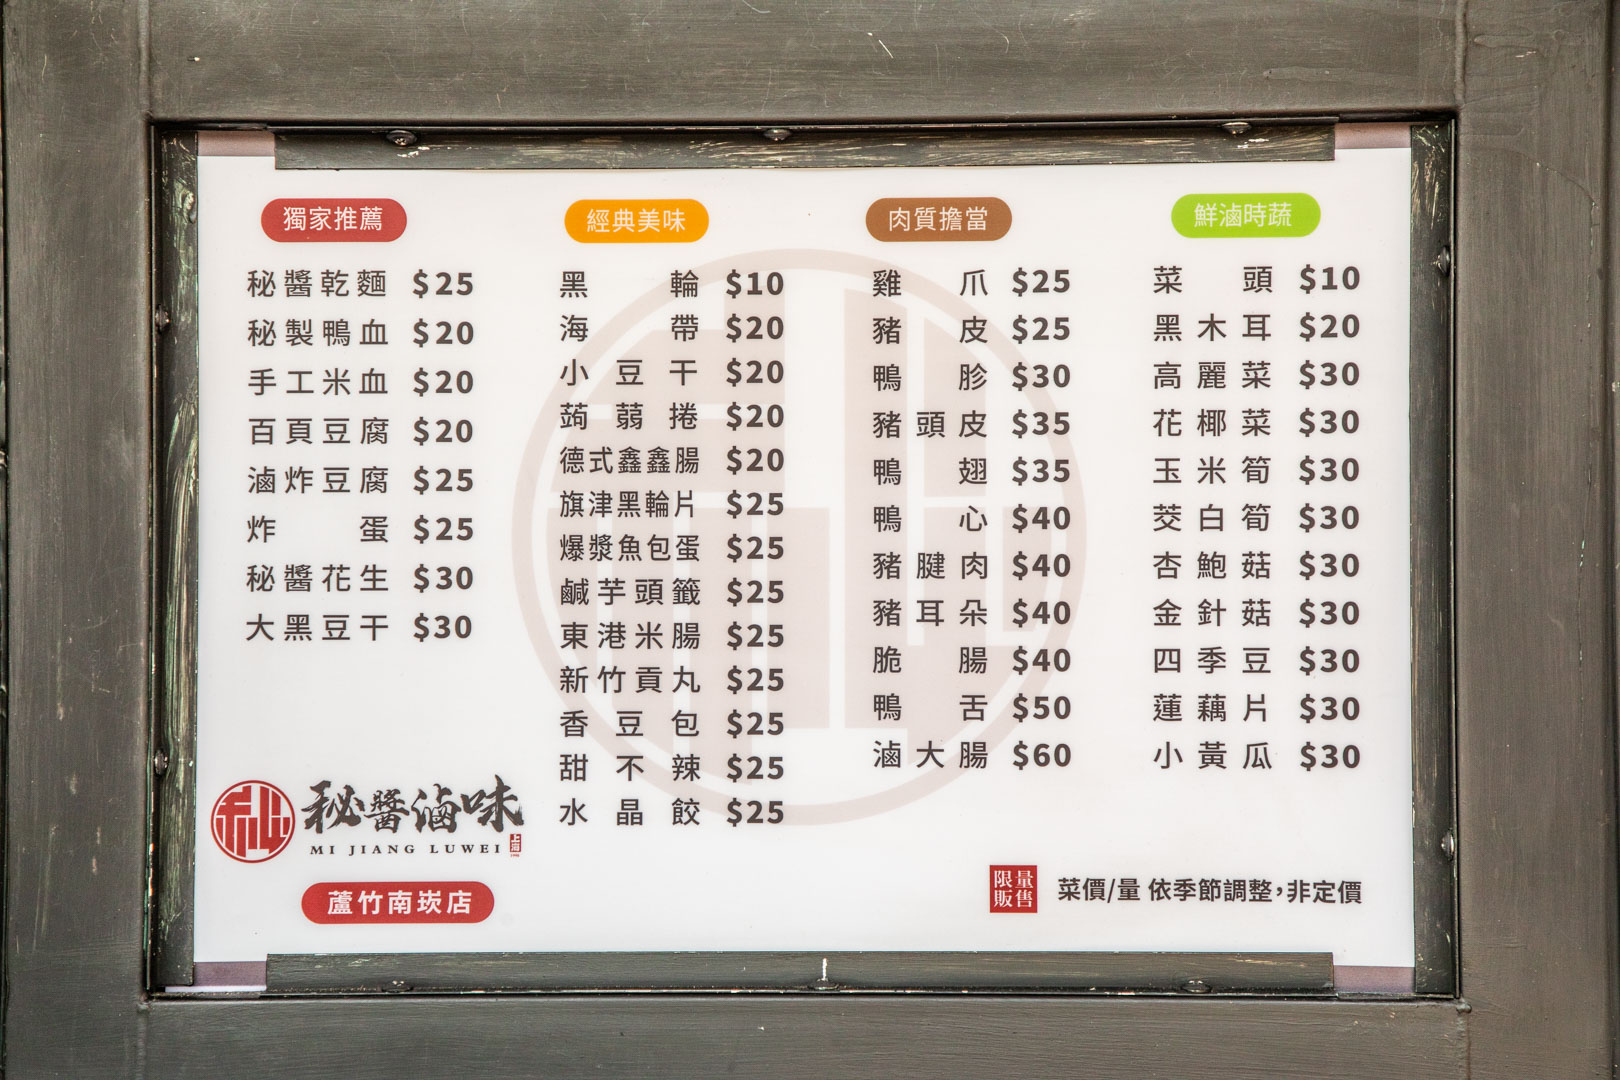 獨家推薦
秘醬乾麵 $25
秘製鴨血 $20
手工米血 $20
百頁豆腐 $20
滷炸豆腐 $25
炸蛋 $25
秘醬花生 $30
大黑豆干 $30
經典美味
黑輪 $10
海帶 $20
小豆干 $20
蒟蒻捲 $20
德式鑫鑫腸 $20
旗津黑輪片 $25
爆漿魚包蛋 $25
鹹芋頭籤 $25
東港米腸 $25
新竹貢丸 $25
香豆包 $25
甜不辣 $25
水晶餃 $25
肉質擔當
雞爪 $25
豬皮 $25
鴨胗 $30
豬頭皮 $35
鴨翅 $35
鴨心 $40
豬腱肉 $40
豬耳朵 $40
脆腸 $40
鴨舌 $50
滷大腸 $60
鮮滷時蔬
菜頭 $10
黑木耳 $20
高麗菜 $30
花椰菜 $30
玉米筍 $30
茭白筍 $30
杏鮑菇 $30
金針菇 $30
四季豆 $30
蓮藕片 $30
小黃瓜 $30
秘醬滷味
MI JIANG LUWEI
蘆竹南崁店
限量販售
菜價/量 依季節調整，非定價